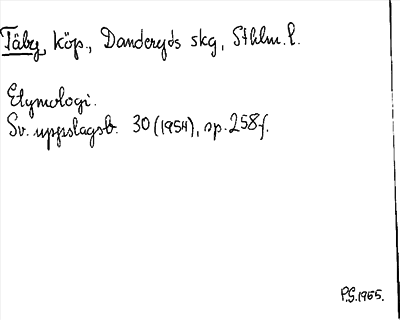 Täby, köp., Danderyds skg, Sthlm. l.
Etymologi.
Sv. uppslagsb. 30 (1954), sp. 258 f.
P.G. 1955.